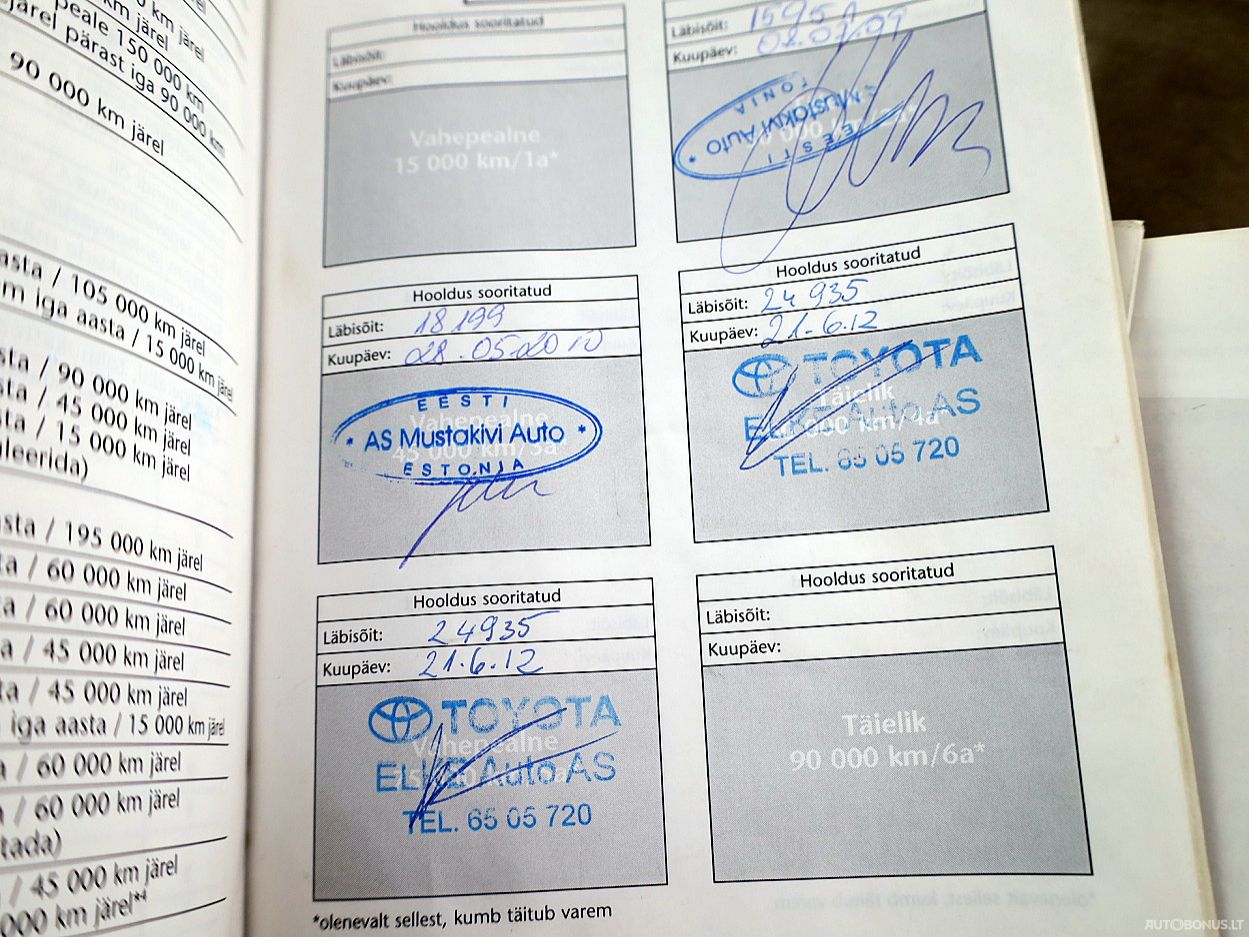 km järel
peale 150 000 km
järel pärast iga 90 000 km
90 000 km järel
aasta / 105 000 km järel
iga aasta / 15 000 km järel
/ 90 000 km järel
/ 45 000 km järel
/ 15 000 km järel
/ 195 000 km järel
/ 60 000 km järel
/ 60 000 km järel
/ 45 000 km järel
/ 45 000 km järel
iga aasta / 15 000 km järel
/ 60 000 km järel
/ 60 000 km järel
/ 45 000 km järel
000 km järel*4
Hooldus sooritatud
Läbisõit:
Kuupäev:
Vahepealne
15 000 km/1a*
Läbisõit:
Kuupäev:
EESTI
Mustakivi Auto
Hooldus sooritatud
Läbisõit: 18 199
Kuupäev: 28.05.2010
EESTI
Vahepealne
AS Mustakivi Auto
45 000 km/3a*
ESTONIA
Hooldus sooritatud
Läbisõit: 24 935
Kuupäev: 21.6.12
TOYOTA
Täielik
ELKE Auto AS
000 km/4a*
TEL. 65 05 720
Hooldus sooritatud
Läbisõit: 24935
Kuupäev: 21.6.12
TOYOTA
Vahepealne
ELKE Auto AS
TEL. 65 05 720
Hooldus sooritatud
Läbisõit:
Kuupäev:
Täielik
90 000 km/6a*
*olenevalt sellest, kumb täitub varem
AUTOBONUS.LT